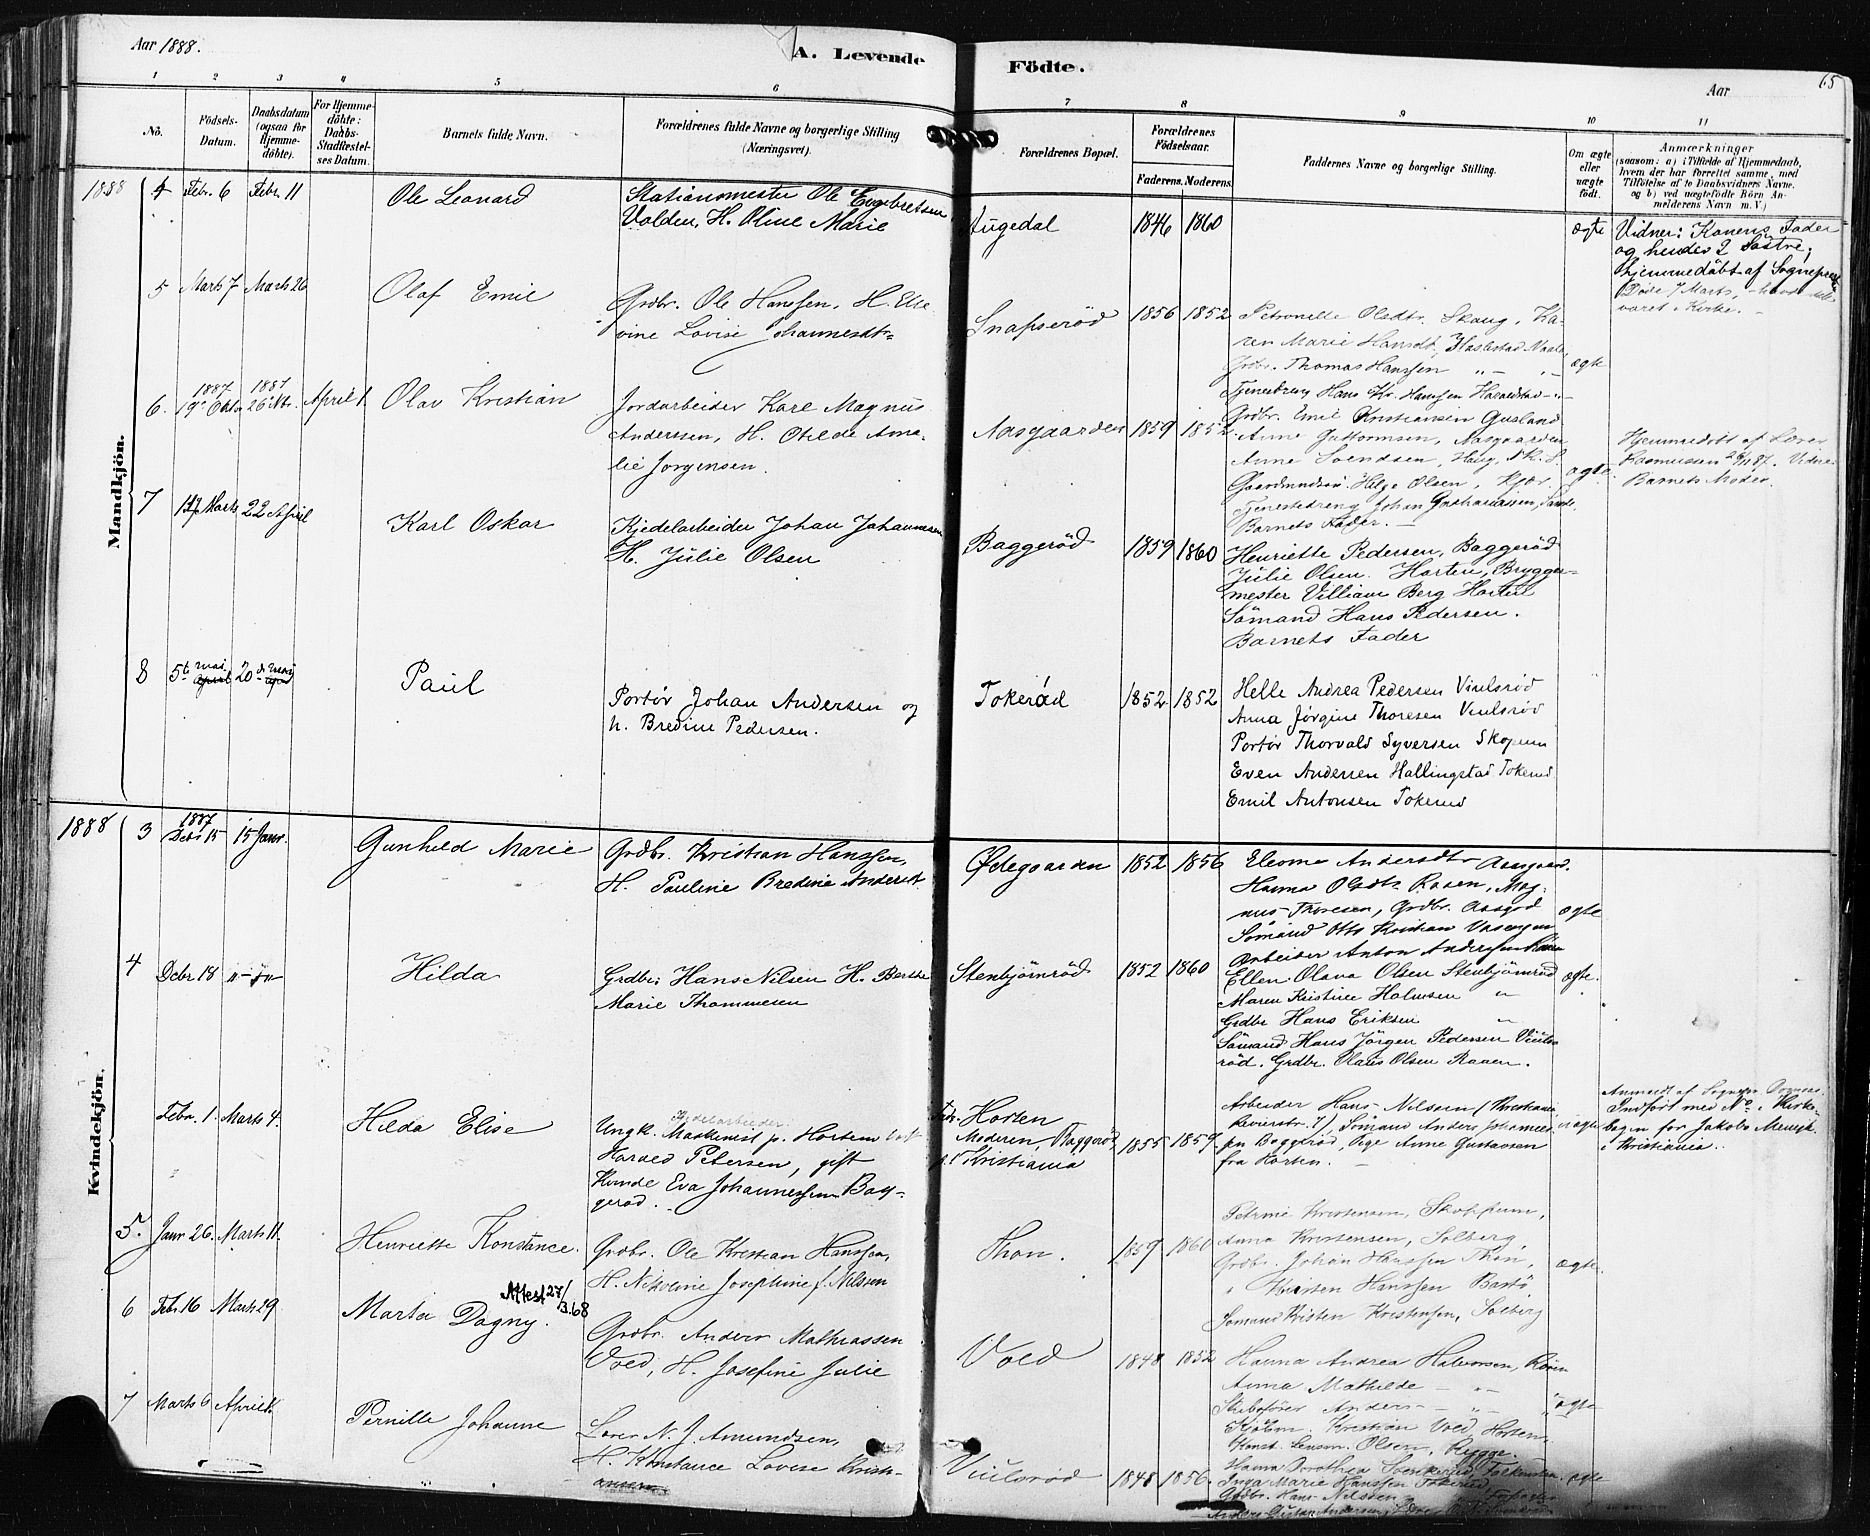 Aar 1888.
A. Levende Födte.
Aar
65
1 2 3 4 5 6 7 8 9 10 11
No.
Födsels-Datum.
Daabsdatum (ogsaa for Hjemme-döbte).
For Hjemme-döbte: Daabs-Stadfæstel-ses Datum.
Barnets fulde Navn.
Forældrenes fulde Navne og borgerlige Stilling (Næringsvei).
Forældrenes Bopæl.
Forældrenes Födselsaar.
Faderens. Moderens.
Faddernes Navne og borgerlige Stilling.
Om ægte eller uægte födt.
Anmærkninger
(saasom: a) i Tilfælde af Hjemmedaab,
hvem der har forrettet samme, med
Tilföielse af to Daabsvidners Navne.
og b) ved uægtefödte Börn An-
melderens Navn m. V.)
Mandkjön.
1888 4 Febr. 6 Febr. 11 Ole Leonard
Stationsmester Ole Engebretsen
Volden, H. Oline Marie
Augedal 1846 1860 ægte
Vidner: Konens Fader
og hendes 2 Söstre,
hjemmedöbt af Sognepræst
Döde 7 Marts,
5 Marts 7 Marts 26 Olaf Emil
Grdbr. Ole Hanssen, H. Else
vine Lovise Johannesdtr
Snapserød 1856 1852
Petronelle Olsdtr. Skaug, Ka-
ren Marie Hansdt,
Grdbr. Thomas Hanssen " "
Tjenestdreng Hans Kr. Hanssen Haraldstad
ægte
6. 1887 19de Oktbr 1887 26 Nbr. April 1 Olav Kristian
Jordarbeider Karl Magnus
Anderssen, H. Otilde Ama-
lie Jorgensen.
Aasgaarden 1859 1852
Grdbr. Emil Kristiansen Gusland
Anne Guttormsen, Aasgaarden
Anne Svendsen, Haug,
Gaardmandssön Helge Olsen,
Tjenestedreng Johan
Barnets Fader.
ægte
Hjemmedöbt af Lærer
Rasmussen 26/11 87. Vidne
Barnets Moder.
7 Marts 22 April Karl Oskar
Kjedelarbeider Johan Johannessen
H. Julie Olsen
Baggeröd 1859 1860
Henriette Pedersen, Baggeröd
Julie Olsen. Horten, Brygger-
mester Villiam Berg Horten
Sömand Hans Pedersen.
Barnets Fader
8 5te mai 20de mai Paul
Portör Johan Andersen og
h. Bredine Pedersen.
Tokeröd 1852 1852
Helle Andrea Pedersen Viulsrød
Anna Jørgine Thoresen Viulsrød
Portör Thorvald Syversen Skopum
Even Andersen Hallingstad Tokerød
Emil Antonsen Tokerød
Kvindekjön.
1888 3 1887 Debr 15 15 Janr. Gunhild Marie
Grdbr. Kristian Hanssen,
H. Pauline Bredine Andersdt
Ødegaarden 1852 1856
Andersdtr Aasgaard.
Hanna Olsdtr. Raaen, Mag-
nus Thoresen, Grdbr.
Sömand Otto Kristian
Arbeider Anton Anderssen
ægte
4 Debr. 18 Hilda
Grdbr. Hans Nilsen H. Berthe
Marie Thommesen
Stenbjörnröd 1852 1860
Ellen Olava Olsen Stenbjörnröd
Maren Kristine Holmsen "
Grdbr Hans Eriksen "
Sömand Hans Jörgen Pedersen Viuls-
röd. Grdbr. Olaus Olsen Raaen.
ægte.
Febr. 1. Marts 4. Hilda Elise
Kjedelarbeider
Ungk. Maskinist p. Horten
Harald Petersen, gift
Kvinde Eva Johannessen Bag-
geröd.
Fadr. Horten
Moderen, Baggeröd,
p. t. Kristiania
1855 1859
Arbeider Hans Nilssen (Kristiania
7), Sömand Anders Johannes-
sen Baggeröd, Pige Anne Gustavsen
fra Horten.
uægte
Anmeldt af
Indfört med No i Kirke-
bogen for Jakobs Menigh.
i Kristiania.
5. Janr 26. Marts 11. Henriette Konstance.
Grdbr. Ole Kristian Hanssen,
H. Josephine f. Nilssen
Thon. 1859 1860
Petrine Kristensen, Skoppum,
Anna Kristensen, Solberg
Grdbr. Johan Hanssen Thon,
" Kristen Hanssen Bastö
Sömand Kristen Kristensen, Solberg
ægte.
6 Febr 16 Marts 29 Marta Dagny.
Attest 27/3.68
Grdbr. Anders Mathiassen
Vold, H. Josefine Julie
Vold 1848 1852
Hanna Andrea Halvorsen,
Anna Mathilde
Skibsförer Anders
Kristian Vold, Horten
Olsen, Rygge.
ægte
7 Marts 6 April Pernille Johanne
Lærer N. J. Amundsen,
H. Konstance Lovise Kristi-
ansen
Viulsröd 1848 1856.
Hanna Dorothea
Inga Marie Hanssen Tokeröd
Grdbr. Hans Nilssen
ægte